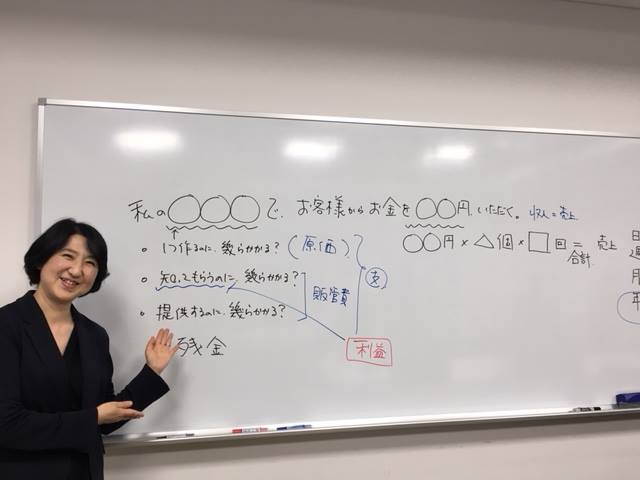 私の○○○で、お客様からお金を○○円いただく。収入=売上
○○円×△個×□回=売上合計
• 1つ作るのに、幾らかかる?(原価)
• 知ってもらうのに幾らかかる?
• 提供するのに、幾らかかる?
販管費
残金
利益
日
週
月
年